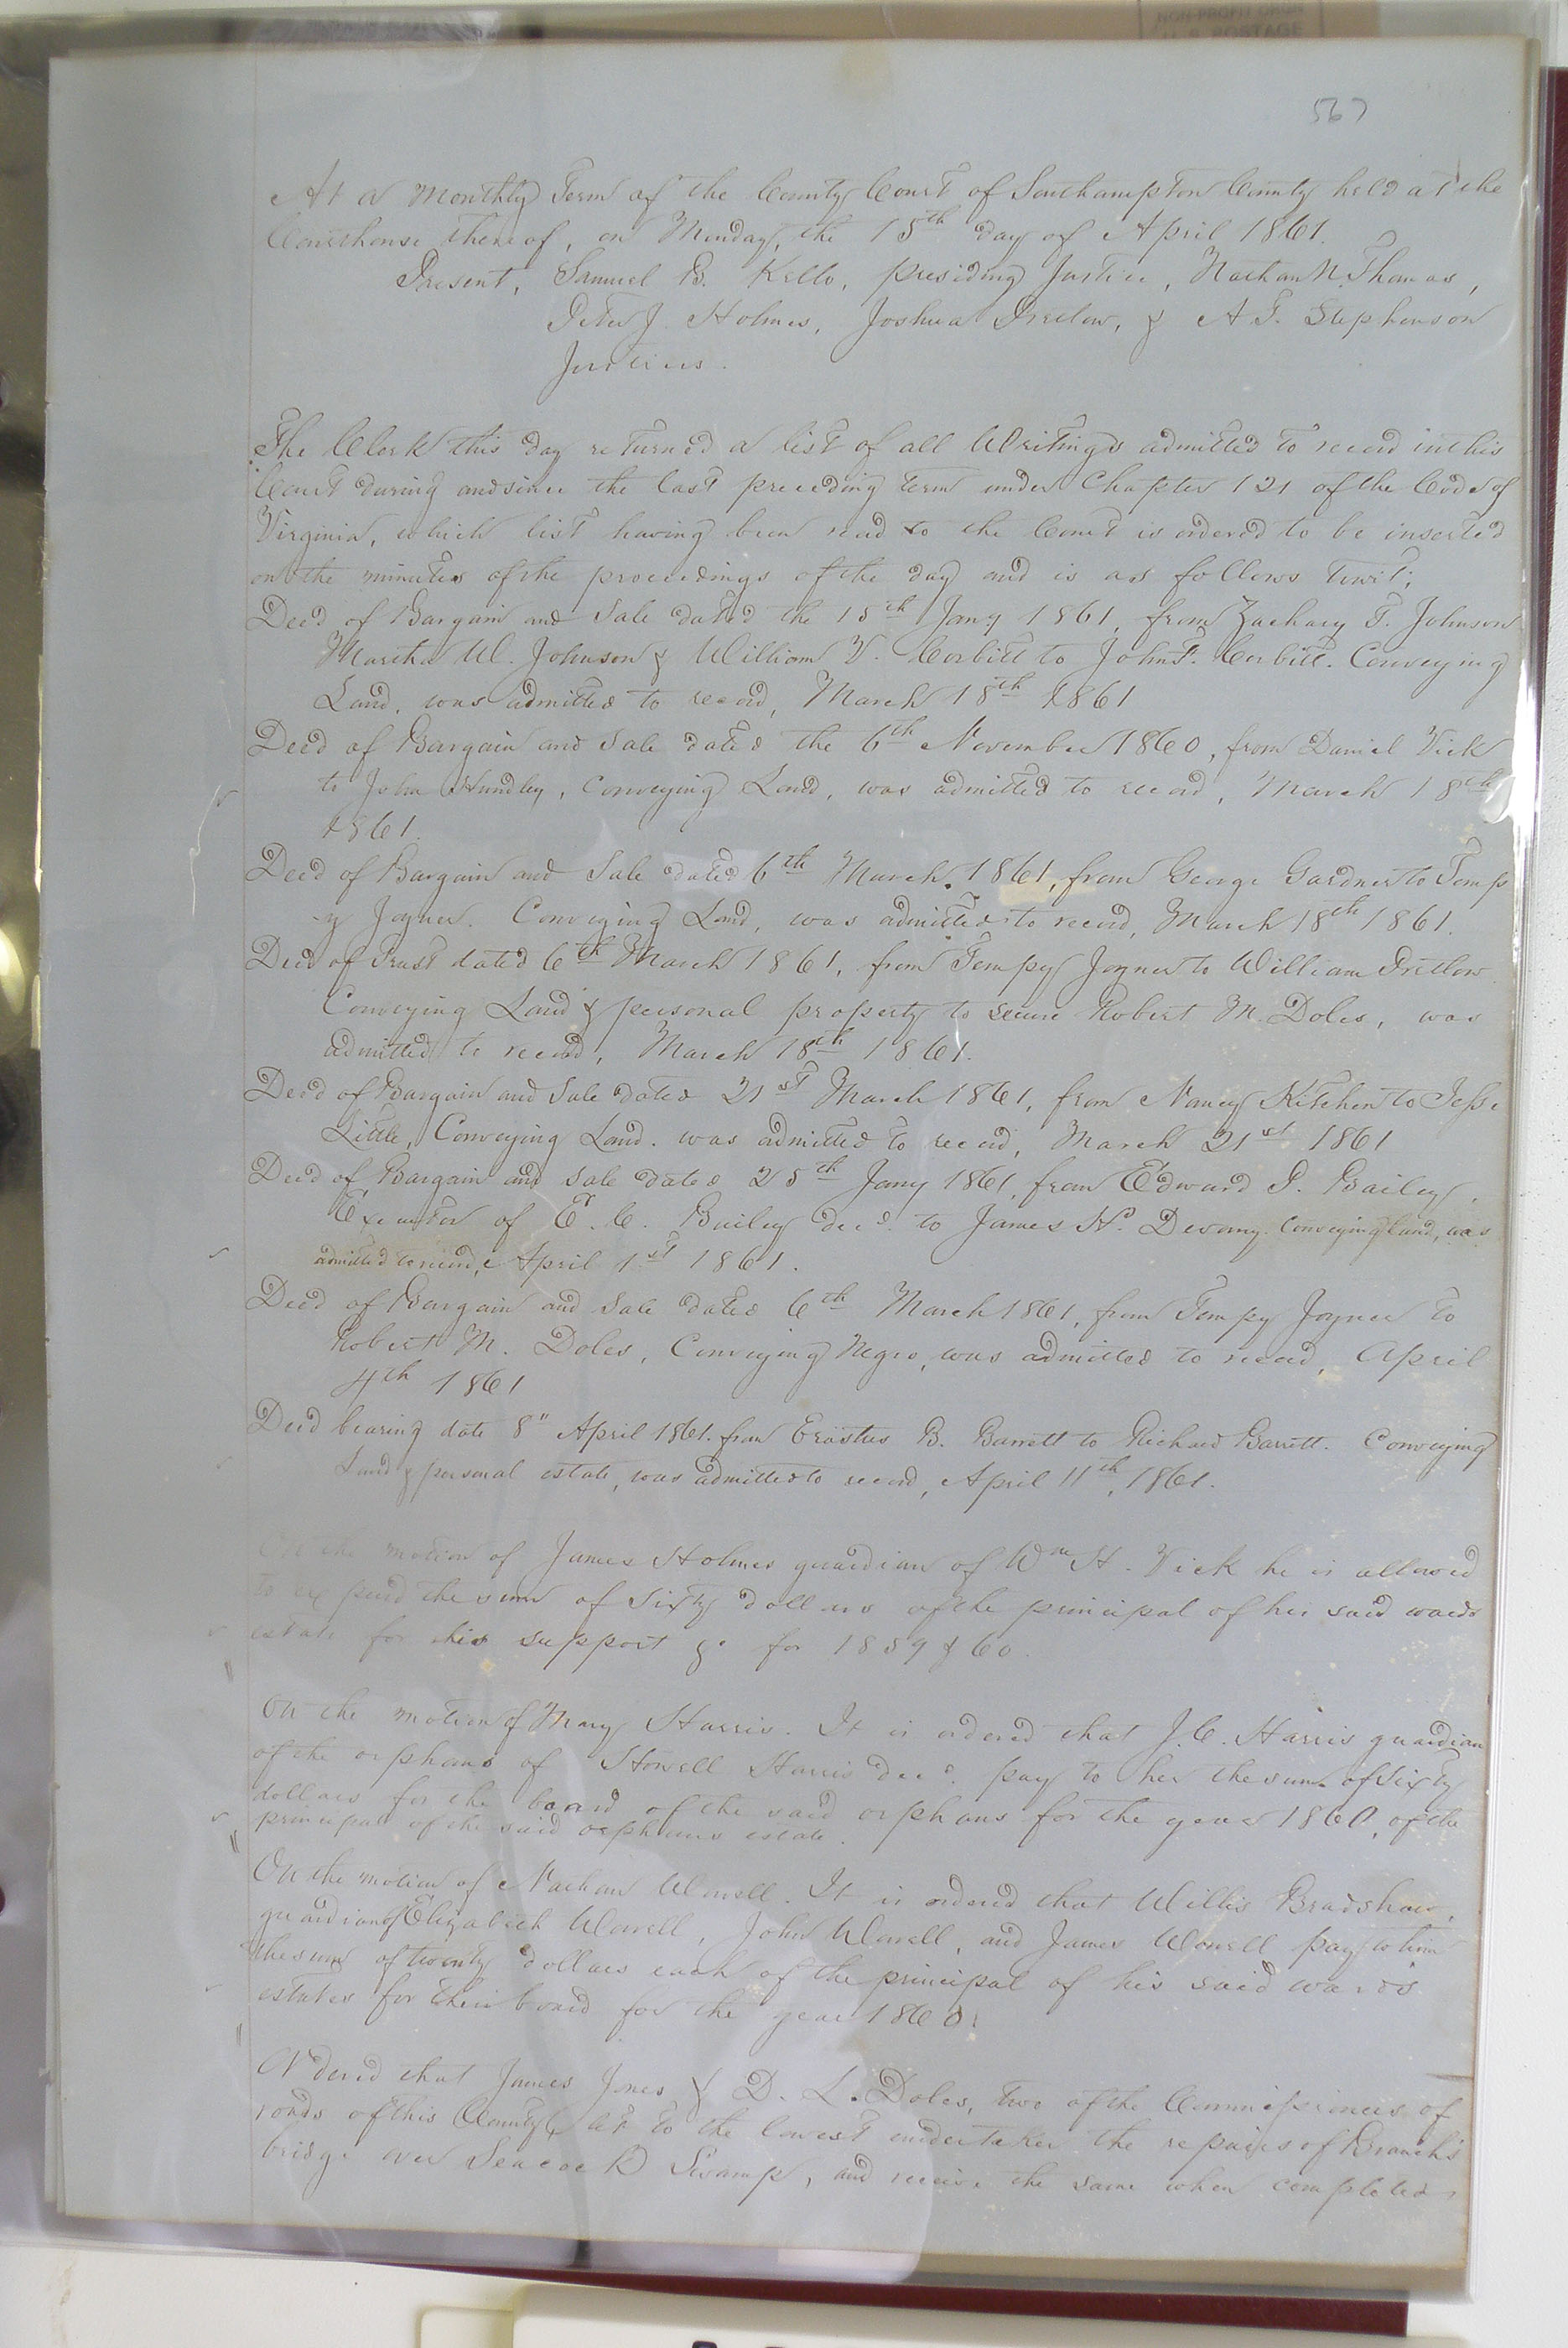 NON-PROFIT ORGN
U.S. POSTAGE
567
At a Monthly Term of the County Court of Southampton County held at the
Courthouse thereof, on Monday, the 15th day of April 1861.
Present, Samuel B. Kello, presiding Justice, Nathan N. Thomas,
Peter J. Holmes, Joshua Pretlow, & A. T. Stephenson
Justices.
The Clerk this day returned a list of all Writings admitted to record in this
Court during and since the last preceding term under Chapter 121 of the Code of
Virginia, which list having been read to the Court is ordered to be inserted
on the minutes of the proceedings of the day and is as follows towit;
Deed of Bargain and Sale dated the 15th Jany 1861, from Zachary T. Johnson
Martha W. Johnson & William V. Corbitt to John F. Corbitt. Conveying
Land, was admitted to record, March 18th 1861
Deed of Bargain and Sale dated the 6th November 1860, from Daniel Vick
to John Hundley, Conveying Land, was admitted to record, March 18th
1861.
Deed of Bargain and Sale dated 6th March, 1861, from George Gardner to Temp
-y Joyner. Conveying Land, was admitted to record, March 18th 1861.
Deed of Trust dated 6th March 1861, from Tempy Joyner to William Pretlow
Conveying Land & personal property to secure Robert M. Doles, was
admitted to record, March 18th 1861.
Deed of Bargain and Sale dated 21st March 1861, from Nancy Kitchen to Jesse
Little, Conveying Land. was admitted to record, March 21st 1861
Deed of Bargain and Sale dated 25th Jany 1861, from Edward P. Bailey,
Executor of E. C. Bailey decd. to James H. Devany. Conveying land, was
admitted to record, April 1st 1861.
Deed of Bargain and Sale dated 6th March 1861, from Tempy Joyner to
Robert M. Doles, Conveying Negro, was admitted to record, April
4th 1861
Deed bearing date 8" April 1861. from Erastus B. Barrett to Richard Barrett. Conveying
Land & personal estate, was admitted to record, April 11th, 1861.
On the motion of James Holmes guardian of Wm H. Vick he is allowed
to expend the sum of Sixty dollars of the principal of his said wards
estate for his support &c for 1859 & 60.
On the motion of Mary Harris. It is ordered that J. C. Harris guardian
of the orphans of Howell Harris decd. pay to her the sum of Sixty
dollars for the board of the said orphans for the year 1860, of the
principal of the said orphans estate.
On the motion of Nathan Worrell. It is ordered that Willis Bradshaw,
guardian of Elizabeth Worrell, John Worrell, and James Worrell pay to him
the sum of twenty dollars each of the principal of his said wards
estates for their board for the year 1860.
Ordered that James Jones & D. L. Doles, two of the Commissioners of
roads of this County, let to the lowest undertaker the repairs of Branch's
bridge over Seacock Swamp, and receive the same when completed.